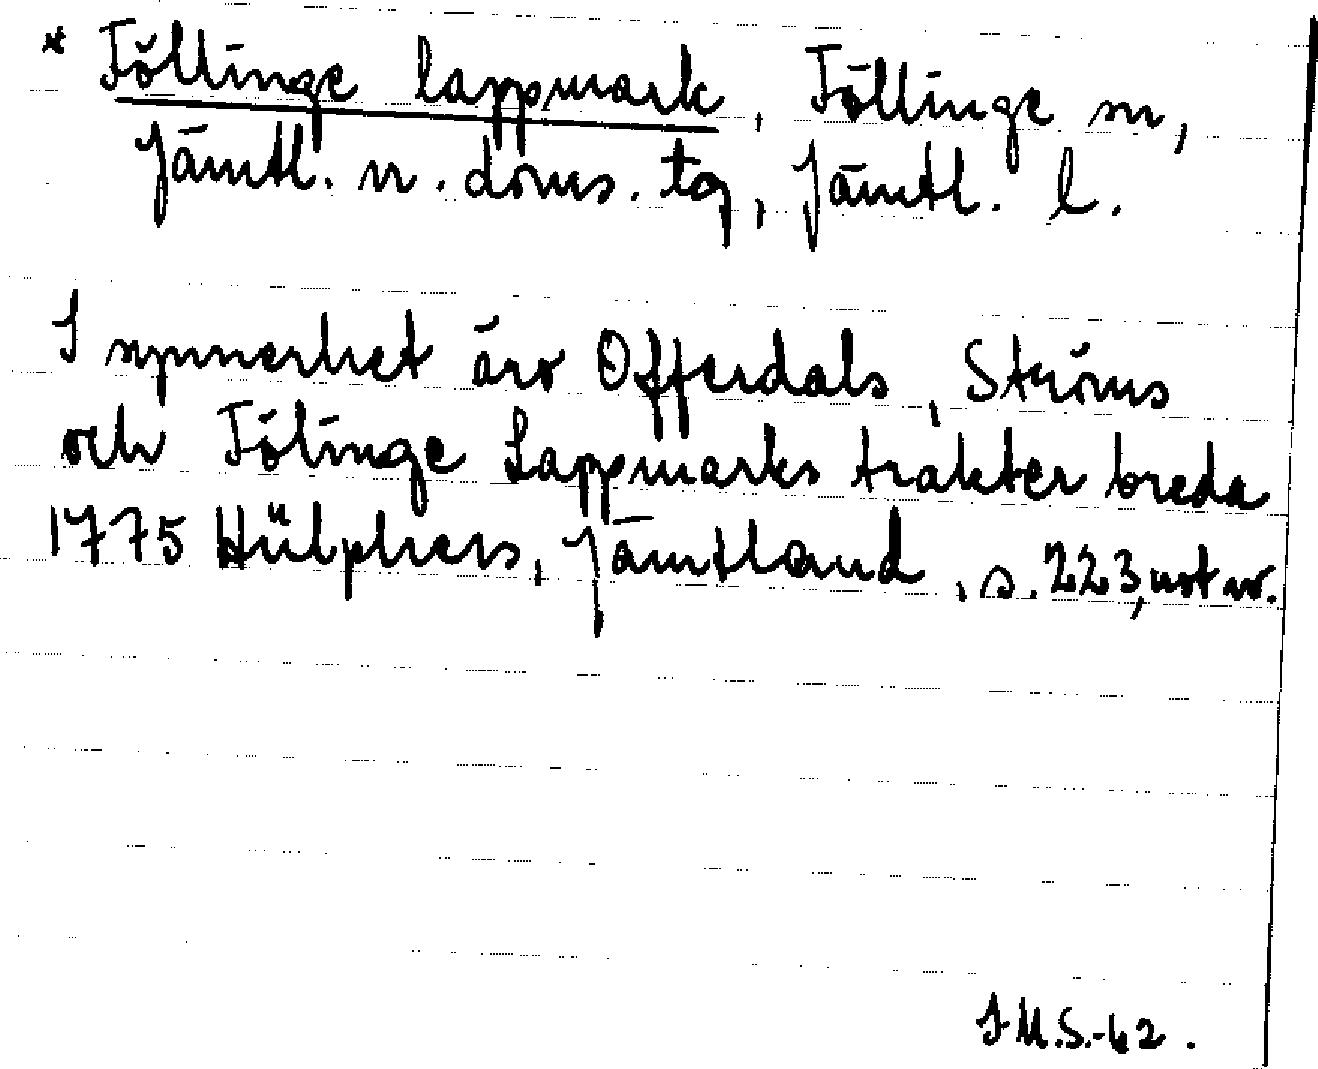 * Föllinge lappmark, Föllinge sn,
Jämtl. n. doms. tg, Jämtl. l.
I synnerhet äro Offerdals, Ströms
och Fölinge Lappmarks trakter breda
1775 Hülphers, Jämtland, s. 223, not w.
I M.S.-42.